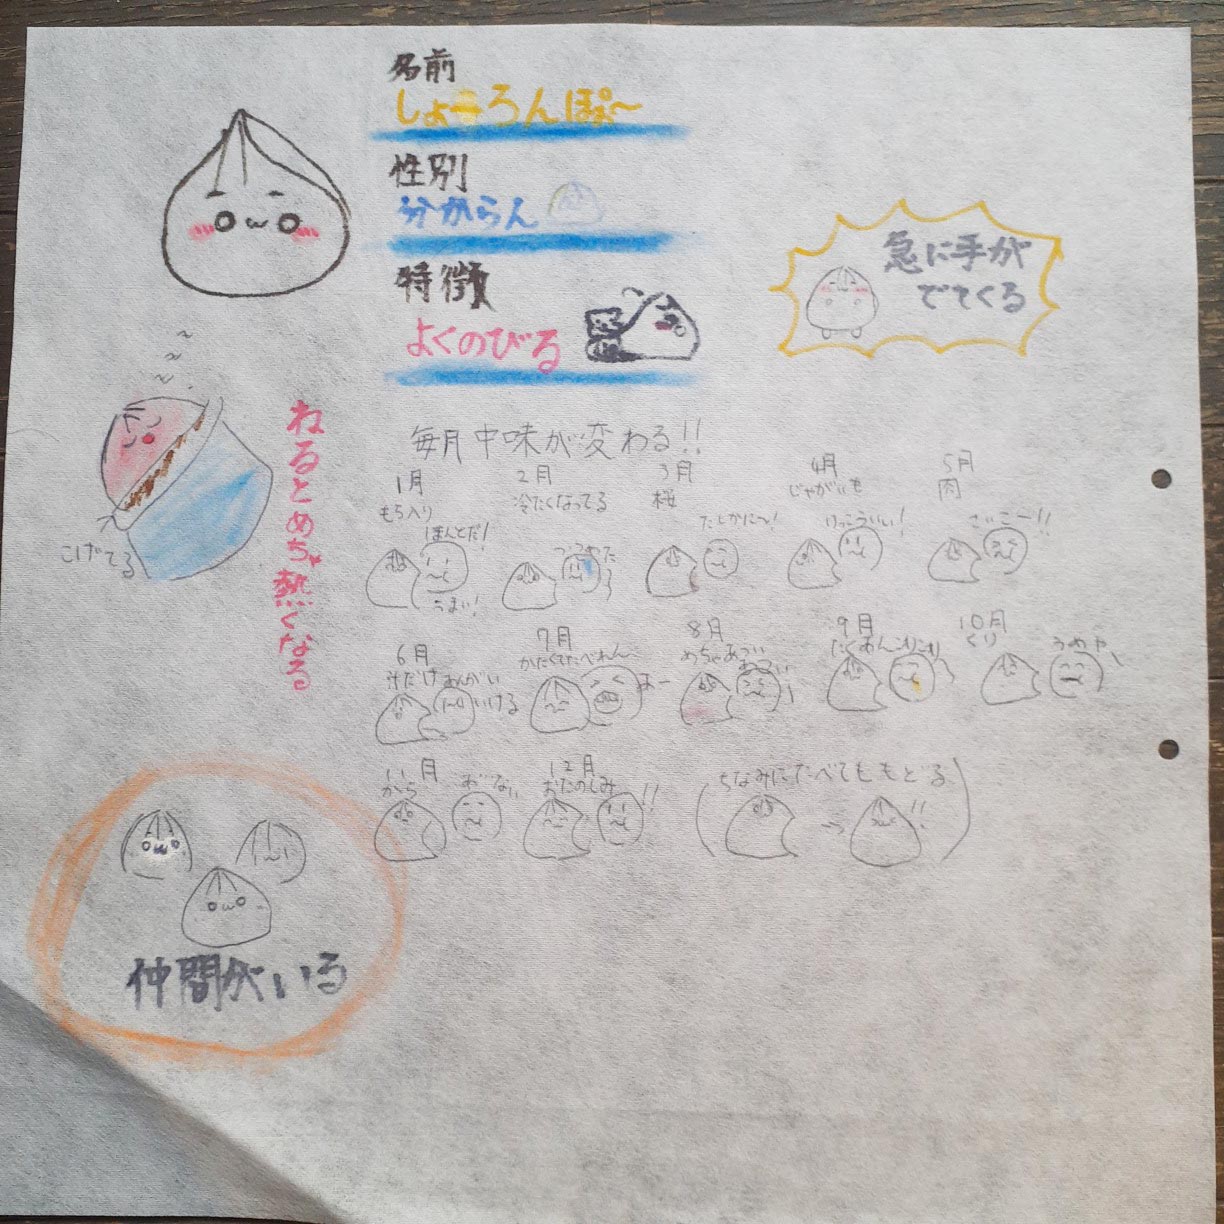 名前
しょーろんぽぉ〜
性別
分からん
特徴
よくのびる
急に手が
でてくる
ねるとめちゃ熱くなる
こげてる
毎月中味が変わる!!
1月
もち入り
ほんとだ!
うまい!
2月
冷たくなってる
つめた
3月
桜
たしかに〜!
4月
じゃがいも
けっこういい!
5月
肉
さいこー!!
6月
汁だけ
あんがい
いける
7月
かたくてたべれん
8月
めちゃあつい
あつい
9月
たくあん
こりこり
10月
くり
うめや
11月
から
12月
おたのしみ
!!
(ちなみにたべてももどる)
→ !!
仲間がいる